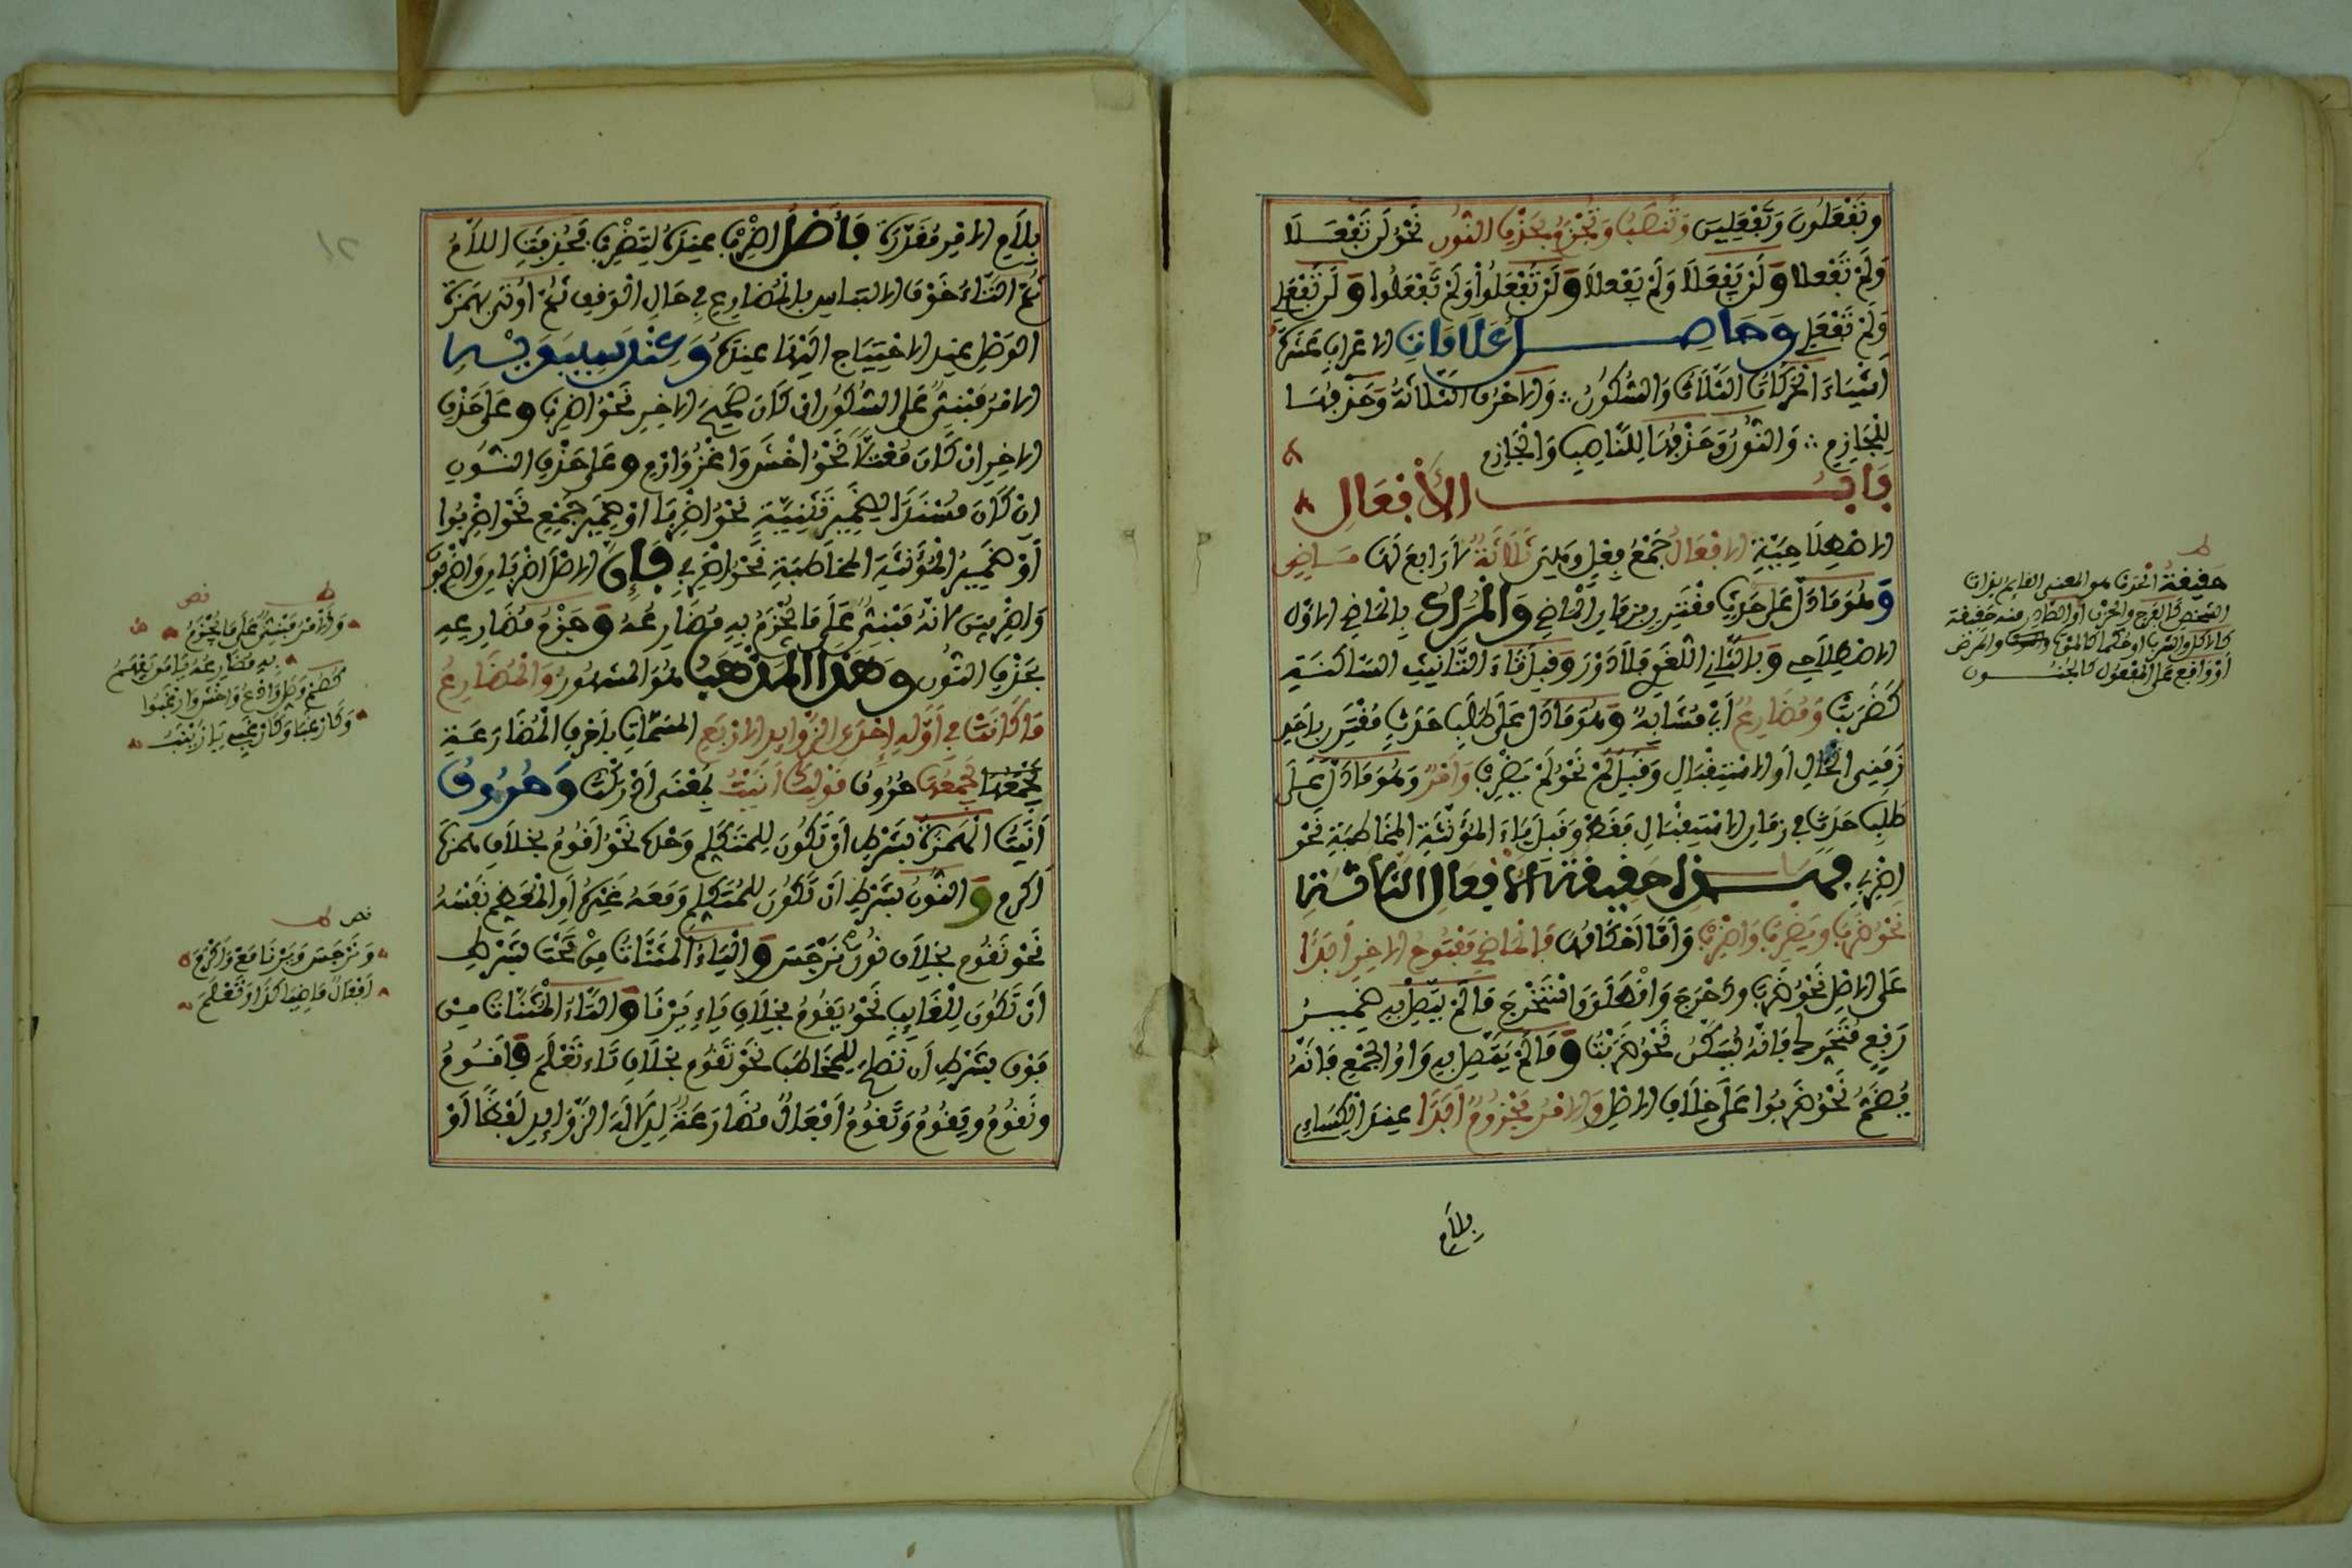 وتفعلون وتفعلين وتنصب وتجزم بحذف النون نحو لن تفعلا
ولم تفعلا ولن يفعلا ولم يفعلا ولن تفعلوا ولم تفعلوا ولن تفعلي
ولم تفعلي وحاصل علامات الاعراب عشرة
أشياء الحركات الثلاث والسكون ؞ والاحرف الثلاثة وحذفها
للجازم ؞ والنون وحذفها للناصب والجازم
باب الأفعال
الاصطلاحية الافعال جمع فعل وهي ثلاثة لا رابع لها ماضي
وهو ما دل على حدث مقترن بزمان الماضي والمراد بالماضي الاول
الاصطلاحي وبالثاني اللغوي فلا دور وقبل تاء التانيث الساكنة
كضربت ومضارع أي مشابه وهو ما دل على حدث مقترن باحد
زمني الحال أو الاستقبال وقبل لم نحو لم يضرب وأمر وهو ما دل على
طلب حدث في زمان الاستقبال فقط وقبل ياء المؤنثة المخاطبة نحو
اضربي فهذا حقيقة الافعال الثلاثة
نحو ضرب ويضرب واضرب وأما احكامها فالماضي مفتوح الاخير أبدا
على الاصل نحو ضرب ودحرج وانطلق واستخرج ما لم يتصل به ضمير
رفع متحرك فانه يسكن نحو ضربت وما لم يتصل به واو الجمع فانه
يضم نحو ضربوا على خلاف الاصل والامر مجزوم أبدا عند الكسائي
بلام
حقيقة الحدث هو المعنى القايم بذات
الشخص كالفرح والحزن أو الصادر منه حقيقة
كالاكل والشرب أو حكما كالموت والمرض
أو واقع على المفعول كالجنون
بلام الامر مقدرة فأصل اضرب عنده لتضرب فحذفت اللام
ثم التاء خوف الالتباس بالمضارع في حال الوقف ثم اوتي بهمزة
الوصل عند الاحتياج اليها عنده وعند سيبويه
الامر مبني على السكون ان كان صحيح الاخير نحو اضرب وعلى حذف
الاخير ان كان معتلا نحو اخش واغز وارم وعلى حذف النون
ان كان مسندا لضمير تثنية نحو اضربا او ضمير جمع نحو اضربوا
أو ضمير المؤنثة المخاطبة نحو اضربي فإن الاصل اضربان واضربون
واضربين لانه مبني على ما يجزم به مضارعه وجزم مضارعه
بحذف النون وهذا المذهب هو المشهور والمضارع
ما كانت في أوله إحدى الزوايد الاربع المسمات باحرف المضارعة
يجمعها حروف قولك أنيت بمعنى ادركت وحروف
أنيت الهمزة بشرط أن تكون للمتكلم وحده نحو أقوم بخلاف همزة
أكرم والنون بشرط أن تكون للمتكلم ومعه غيره أو المعظم نفسه
نحو نقوم بخلاف نون نرجس والياء المثنات من تحت بشرط
أن تكون للغايب نحو يقوم بخلاف ياء يرنا والتاء المثنات من
فوق بشرط أن تصلح للمخاطب نحو تقوم بخلاف تاء تعلم فأقوم
ونقوم ويقوم وتقوم أفعال مضارعة لدلالة الزوايد لفظا أو
والامر مبني على ما يجزم
به مضارعه
ونرجس ويرنا
أفعال ماضية